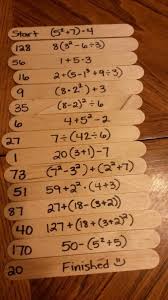 Start (5²+7)·4
128 8(3²-6÷3)
56 1+5·3
16 2+(5-1³+9÷3)
9 (8·2²)+3
35 (8-2)²÷6
6 4+5²-2
27 7÷(42÷6)
1 20(3+1)-7
73 (7²-3²)+(2²+7)
51 59+2²·(4+3)
87 27+(18-(3+2))
40 127+(18+(3+2)²)
170 50-(5²+5)
20 Finished